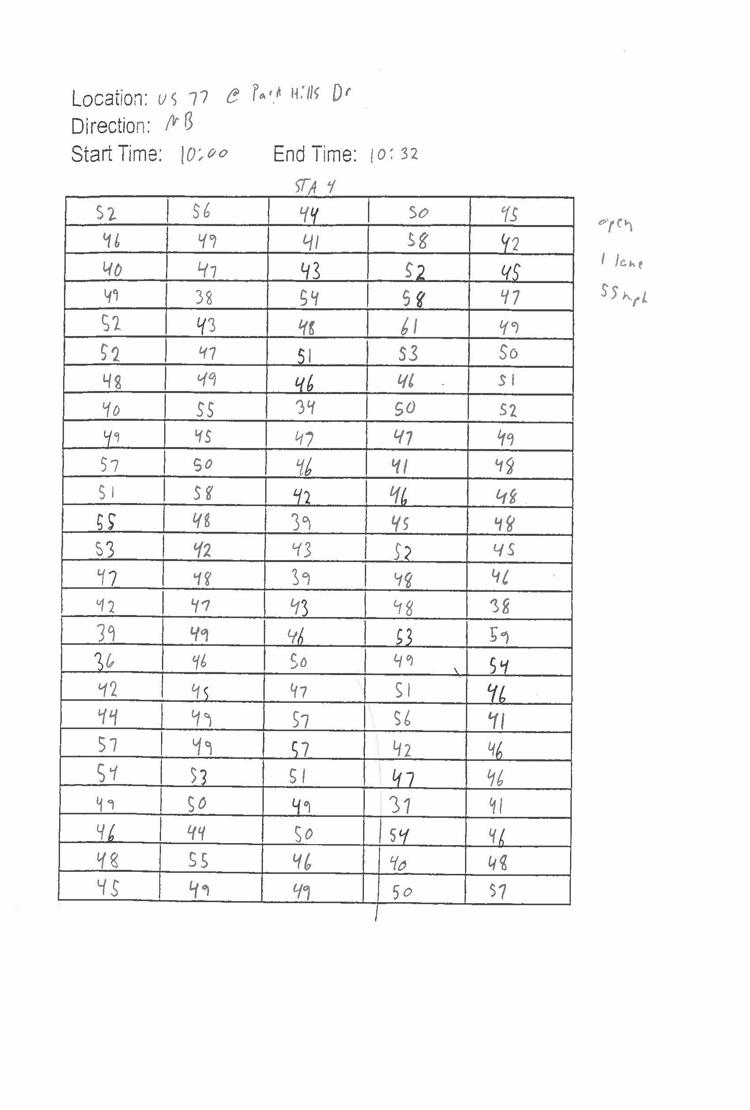 Location: US 77 @ Park Hills Dr
Direction: NB
Start Time: 10:00 End Time: 10:32
STA 4
52 56 44 50 45
46 49 41 58 42
40 47 43 52 45
49 38 54 58 47
52 43 48 61 49
52 47 51 53 50
48 49 46 46 51
40 55 34 50 52
49 45 47 47 49
57 50 46 41 48
51 58 42 46 48
55 48 39 45 48
53 42 43 52 45
47 48 39 48 46
42 47 43 48 38
39 49 46 53 59
36 46 50 49 54
42 45 47 51 46
44 49 57 56 41
57 49 57 42 46
54 53 51 47 46
49 50 49 37 41
46 44 50 54 46
48 55 46 40 48
45 49 49 50 57
open
1 lane
55 mph